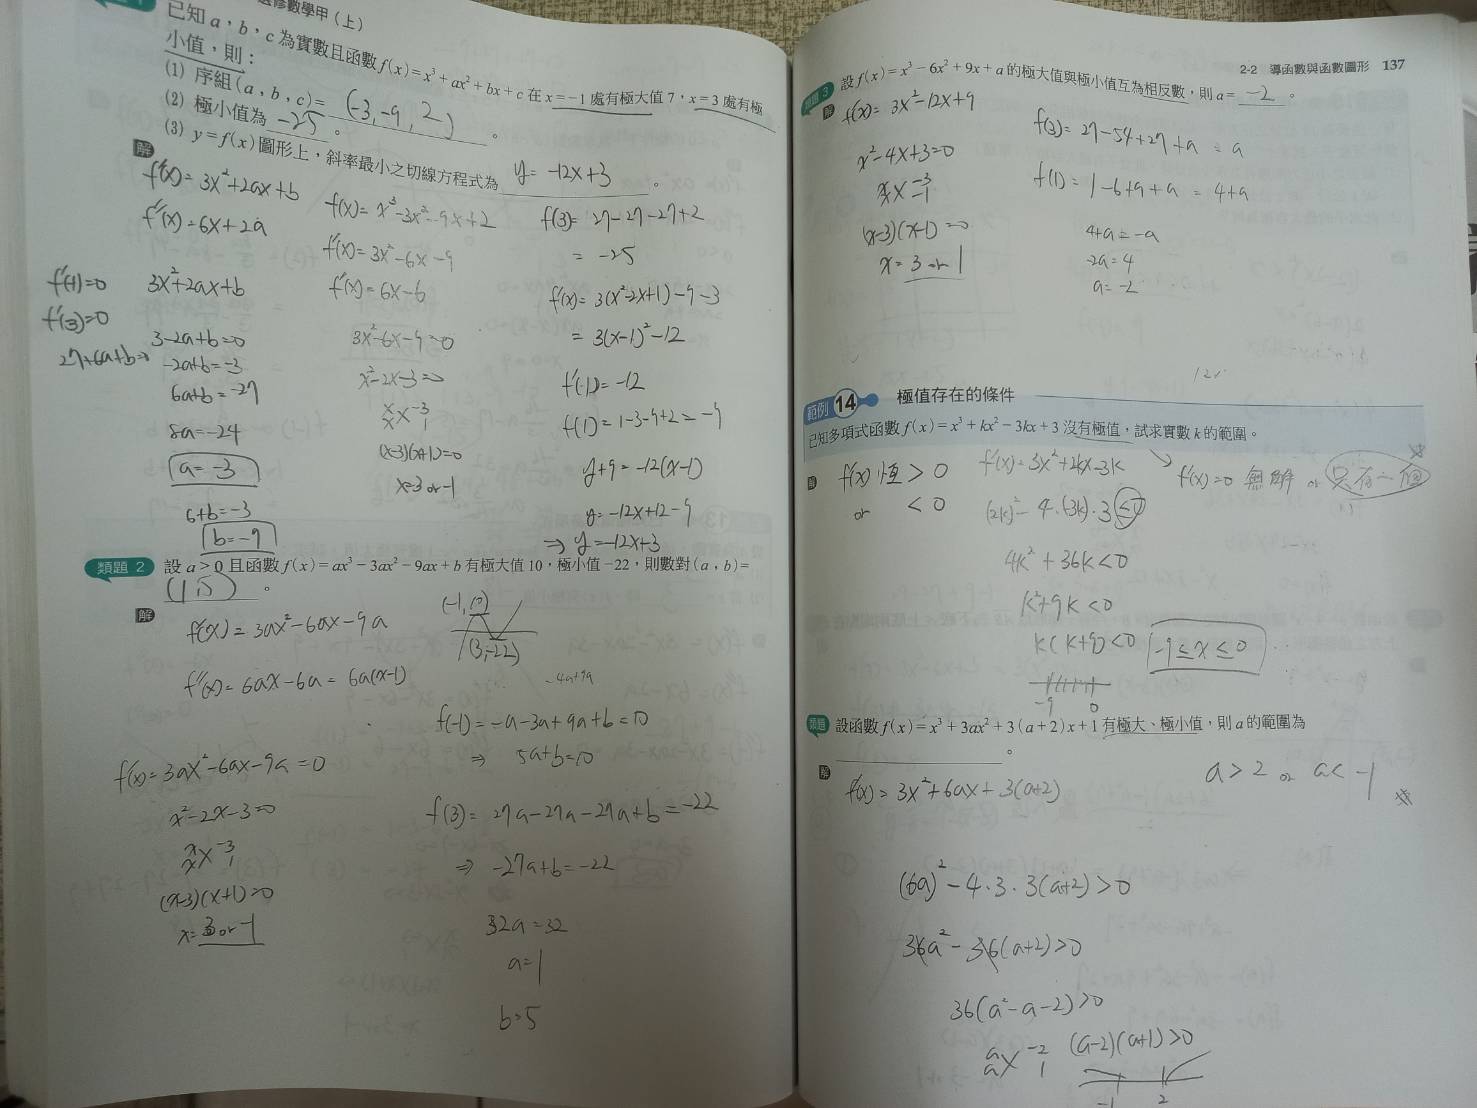 選修數學甲(上)
已知a,b,c為實數且函數f(x)=x³+ax²+bx+c在x=-1處有極大值7,x=3處有極
小值,則:
(1) 序組(a,b,c)= (-3,-9,2) 。
(2) 極小值為 -25 。
(3) y=f(x)圖形上,斜率最小之切線方程式為 y=-12x+3 。
解
f'(x)=3x²+2ax+b
f''(x)=6x+2a
f'(-1)=0
f'(3)=0
27+6a+b=0
3x²+2ax+b
3-2a+b=0
-2a+b=-3
6a+b=-27
8a=-24
a=-3
6+b=-3
b=-9
f(x)=x³-3x²-9x+2
f'(x)=3x²-6x-9
f''(x)=6x-6
3x²-6x-9=0
x²-2x-3=0
x -3
x 1
(x-3)(x+1)=0
x=3 or -1
f(3)=27-27-27+2
=-25
f'(x)=3(x²-2x+1)-9-3
=3(x-1)²-12
f'(1)=-12
f(1)=1-3-9+2=-9
y+9=-12(x-1)
y=-12x+12-9
⇒ y=-12x+3
類題 2 設a>0且函數f(x)=ax³-3ax²-9ax+b有極大值10,極小值-22,則數對(a,b)=
(1,5) 。
解
f'(x)=3ax²-6ax-9a
f''(x)=6ax-6a=6a(x-1)
(-1,10)
(3,-22)
-4a+9a
f'(x)=3ax²-6ax-9a=0
x²-2x-3=0
x -3
x 1
(x-3)(x+1)=0
x=3 or -1
f(-1)=-a-3a+9a+b=10
⇒ 5a+b=10
f(3)=27a-27a-27a+b=-22
⇒ -27a+b=-22
32a=32
a=1
b=5
2-2 導函數與函數圖形 137
類題 3 設f(x)=x³-6x²+9x+a的極大值與極小值互為相反數,則a= -2 。
解
f'(x)=3x²-12x+9
x²-4x+3=0
x -3
x -1
(x-3)(x-1)=0
x=3 or 1
f(3)=27-54+27+a=a
f(1)=1-6+9+a=4+a
4+a=-a
-2a=4
a=-2
範例 14 極值存在的條件
已知多項式函數f(x)=x³+kx²-3kx+3沒有極值,試求實數k的範圍。
解
f'(x)恒>0
or <0
f'(x)=3x²+2kx-3k
f'(x)=0 無解 or 只有一個
(2k)²-4·(-3k)·3≤0
4k²+36k<0
k²+9k<0
k(k+9)<0
-9≤x≤0
-9 0
類題 設函數f(x)=x³+3ax²+3(a+2)x+1有極大、極小值,則a的範圍為
。
解
a>2 or a<-1
f'(x)=3x²+6ax+3(a+2)
(6a)²-4·3·3(a+2)>0
36a²-36(a+2)>0
36(a²-a-2)>0
a -2
a 1
(a-2)(a+1)>0
-1 2